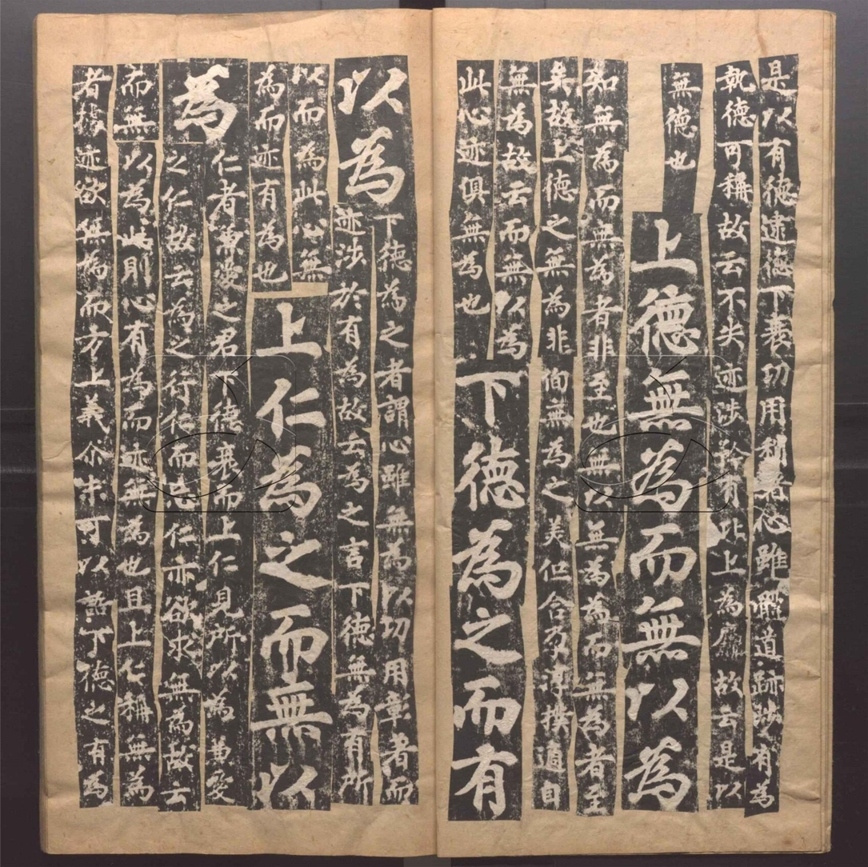 是以有德逮德下衰功用稍著心雖體道跡涉有為
執德可稱故云不失迹涉矜有比上為麤故云是以
無德也
上德無為而無以為
知無為而無為者非至也無以無為為而無為者至
矣故上德之無為非徇無為之美但含孕淳樸適自
無為故云而無以為
此心迹俱無為也
下德為之而有
以為
下德為之者謂心雖無為以功用彰著而
迹涉於有為故云為之言下德無為有所
以而為此心無
為而迹有為也
上仁為之而無以
為
仁者兼愛之名下德衰而上仁見所以為兼愛
之仁故云為之行仁而忘仁亦欲求無為故云
而無以為此則心有為而迹無為也且上仁稱無為
者據迹欲無為而方上義亦未可以語下德之有為